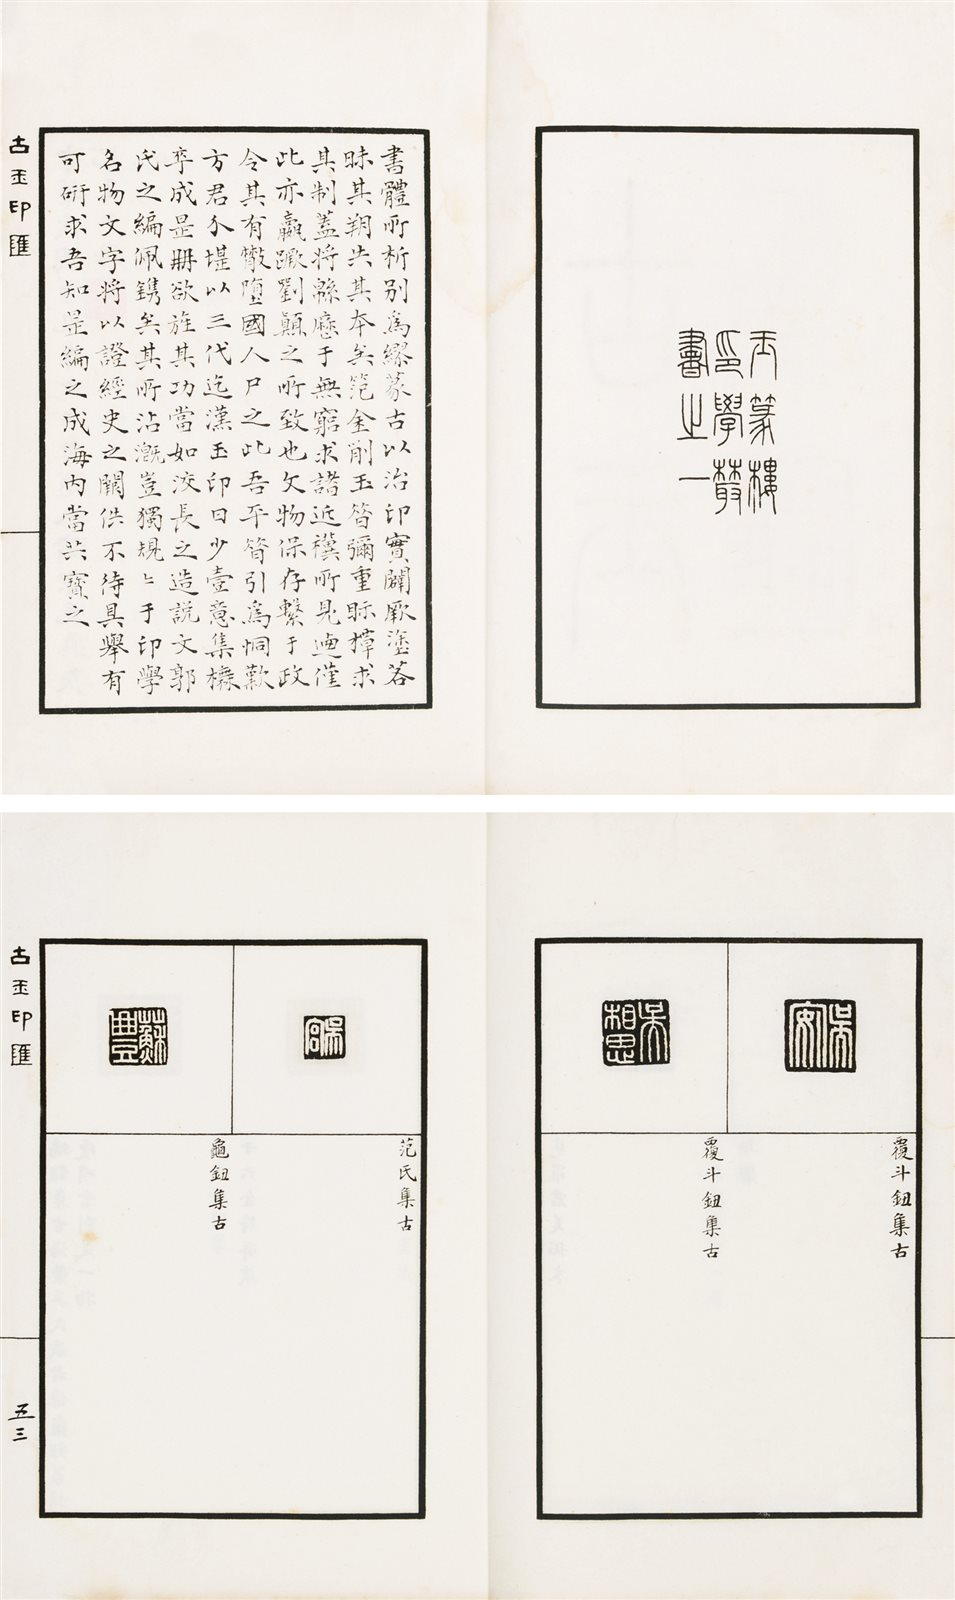 玉篆樓
印學叢
書之一
書體所析別爲繆篆古以治印實闢厥塗若
昧其朔失其本矣笵金削玉昔彌重眎求
其制蓋將緜歷于無窮求諸近禩所見迺僅
此亦嬴蹶劉顛之所致也文物保存繫于政
令其有斁墮國人尸之此吾平昔引爲恫歎
方君介堪以三代迄漢玉印日少壹意集橅
卒成是冊欲旌其功當如洨長之造説文郭
氏之編佩觿矣其所沾漑豈獨規〻于印學
名物文字將以證經史之闕佚不待具舉有
可研求吾知是編之成海內當共寶之
古玉印匯
吳
覆斗鈕集古
吳相思
覆斗鈕集古
吳宮
范氏集古
蘇豐
龜鈕集古
古玉印匯
五三